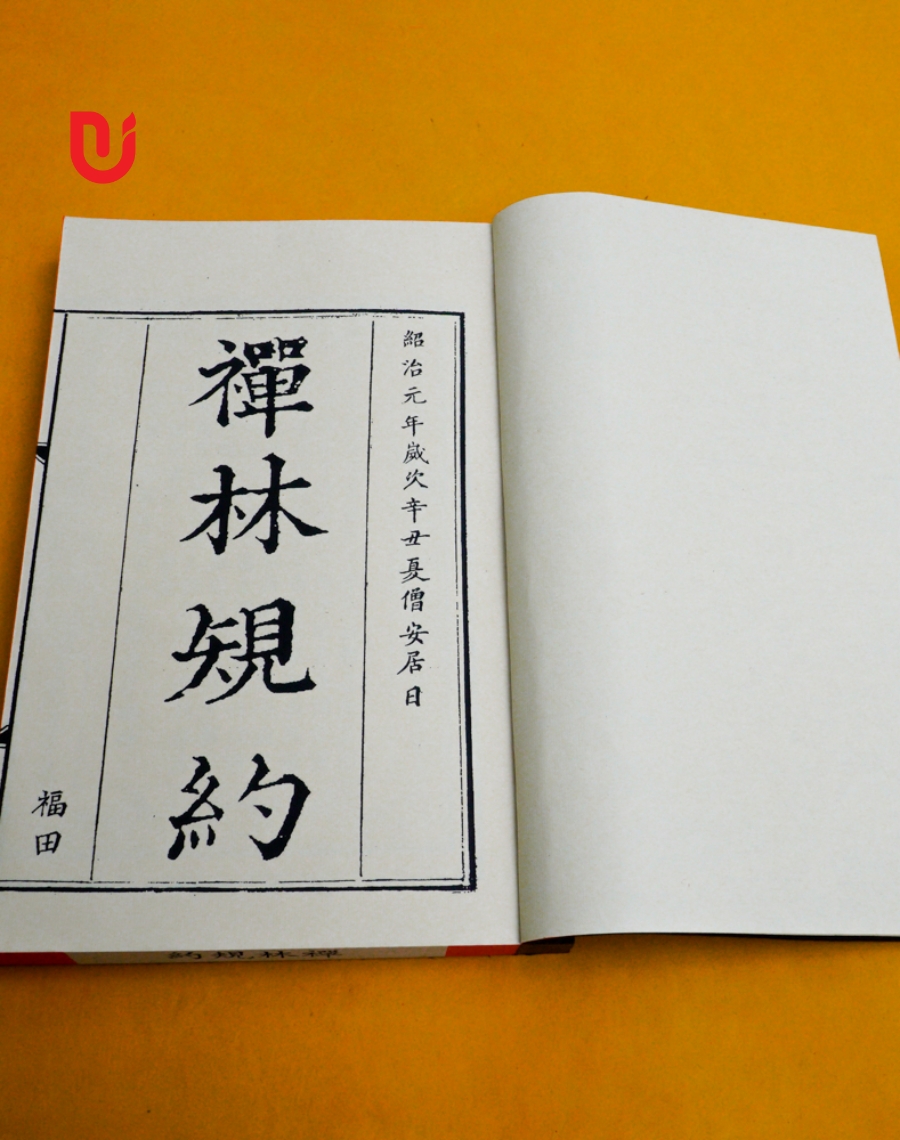 紹治元年歲次辛丑夏僧安居日
禪林規約
福田
禪林規約